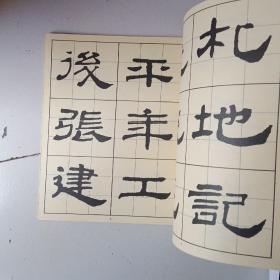 札地記
平年工
後張建